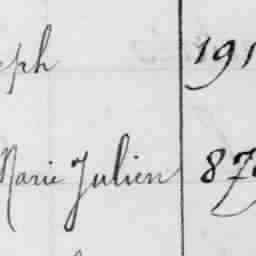 eph 191
Marie Julien 87